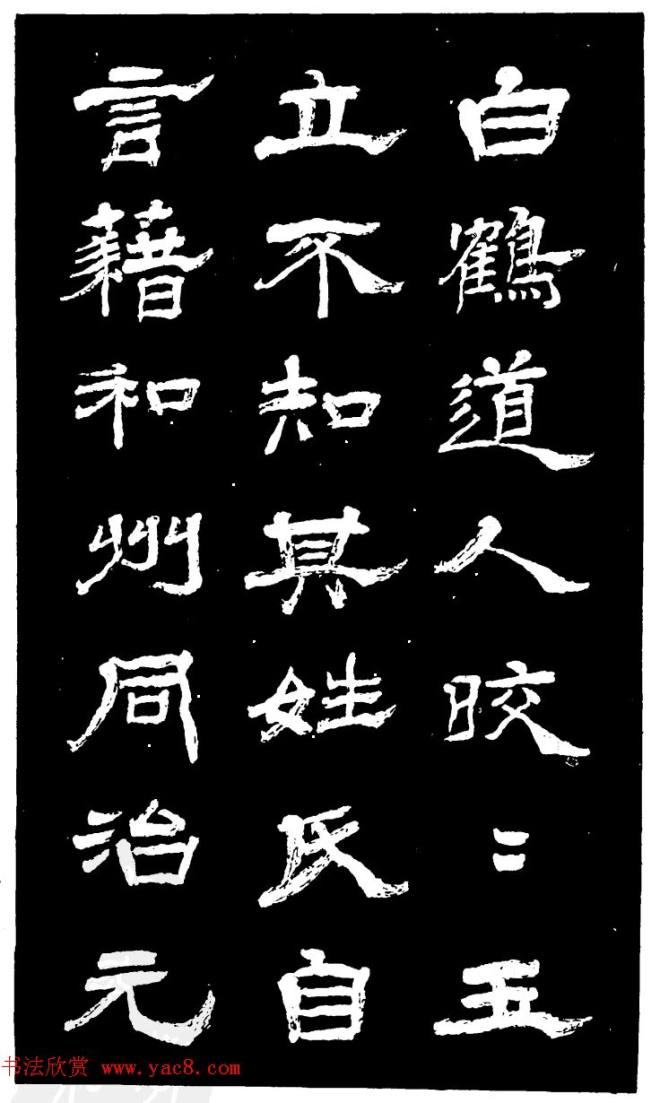 白鶴道人晈〻玉
立不知其姓氏自
言藉和州同治元
书法欣赏 www.yac8.com